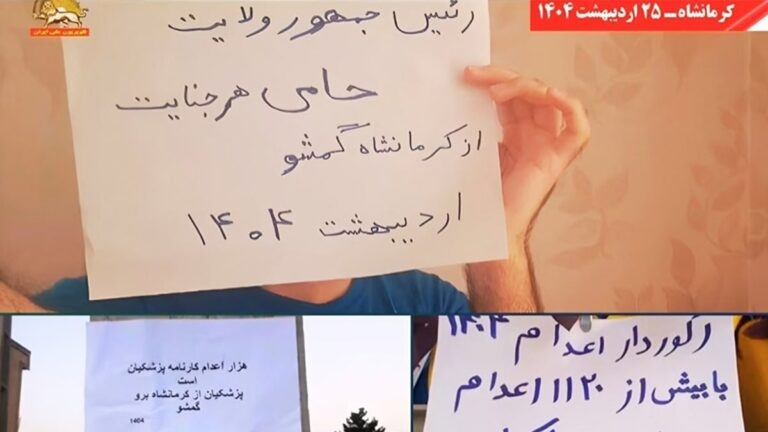 کرمانشاه ــ ۲۵ اردیبهشت ۱۴۰۴
رئیس جمهور ولایت
حامی هر جنایت
از کرمانشاه گمشو
اردیبهشت ۱۴۰۴
هزار اعدام کارنامه پزشکیان
است
پزشکیان از کرمانشاه برو
گمشو
1404
رکوردار اعدام ۱۴۰۴
با بیش از ۱۱۲۰ اعدام